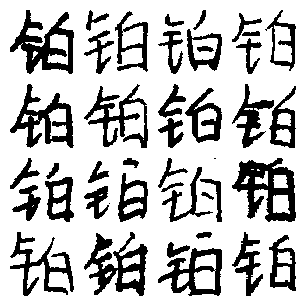 铂铂铂铂
铂铂铂铂
铂铂铂铂
铂铂铂铂